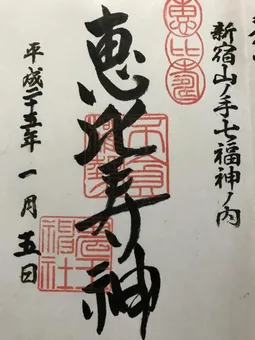 新宿山ノ手七福神ノ内
恵比寿
恵比寿神
平成二十五年一月五日